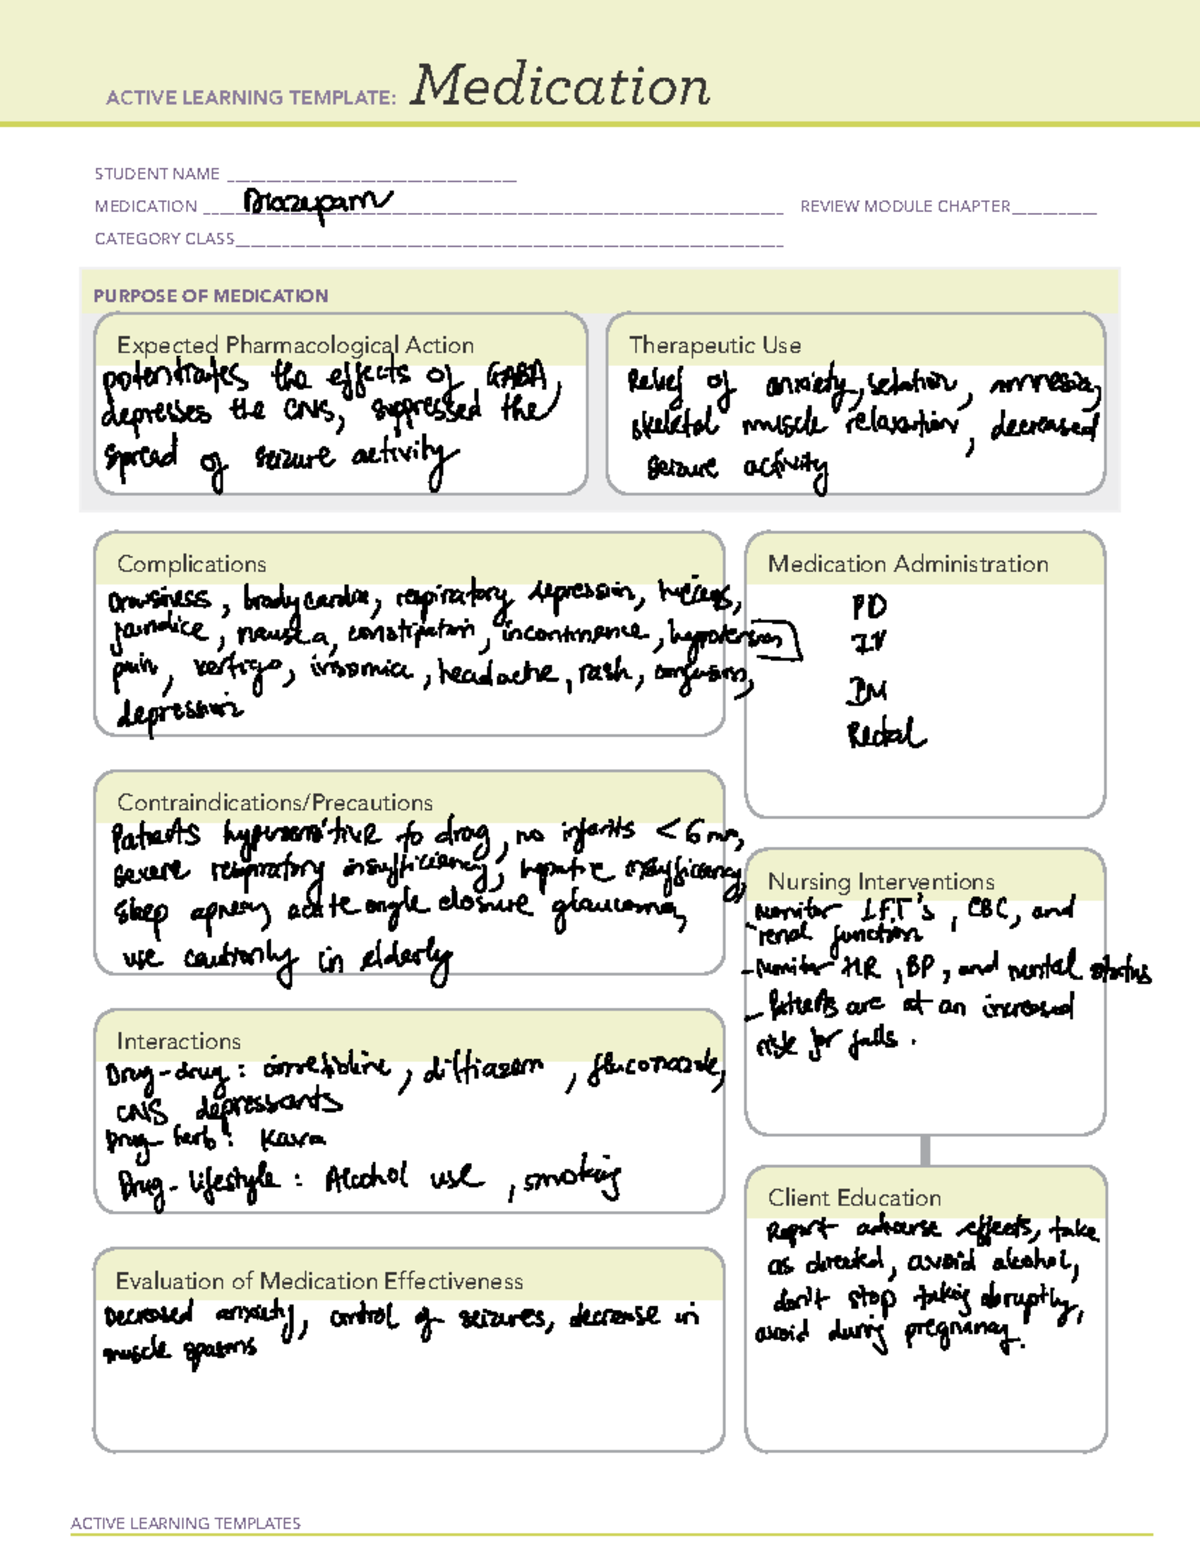 ACTIVE LEARNING TEMPLATE: Medication
STUDENT NAME
MEDICATION Diazepam REVIEW MODULE CHAPTER
CATEGORY CLASS
PURPOSE OF MEDICATION
Expected Pharmacological Action
potentiates the effects of GABA,
depresses the CNS, suppressed the
spread of seizure activity
Therapeutic Use
Relief of anxiety, sedation, amnesia,
skeletal muscle relaxation, decreased
seizure activity
Complications
Drowsiness, bradycardia, respiratory depression, hiccups,
jaundice, nausea, constipation, incontinence, hypotension
pain, vertigo, insomnia, headache, rash, confusion,
depression
Medication Administration
PO
IV
IM
Rectal
Contraindications/Precautions
Patients hypersensitive to drug, no infants < 6 mo,
severe respiratory insufficiency, hepatic insufficiency,
sleep apnea, acute angle closure glaucoma,
use cautiously in elderly
Nursing Interventions
- Monitor LFT's, CBC, and
renal function
- Monitor HR, BP, and mental status
- Patients are at an increased
risk for falls.
Interactions
Drug-drug: diltiazem, fluconazole,
CNS depressants
Drug-herb: Kava
Drug-lifestyle: Alcohol use, smoking
Client Education
Report adverse effects, take
as directed, avoid alcohol,
don't stop taking abruptly,
avoid during pregnancy.
Evaluation of Medication Effectiveness
Decreased anxiety, control of seizures, decrease in
muscle spasms
ACTIVE LEARNING TEMPLATES